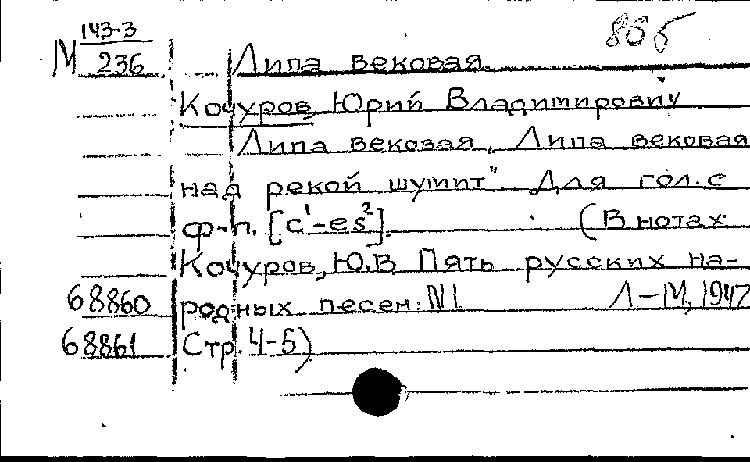 143-3 856
М 236 Липа вековая.
Кочуров, Юрий Владимирович
Липа вековая. „Липа вековая
над рекой шумит" Для гол. с
ф-п. [c¹-es²]. (В нотах:
Кочуров, Ю.В. Пять русских на-
68860 родных песен. №1. Л-М, 1947
68861 Стр. 4-5)